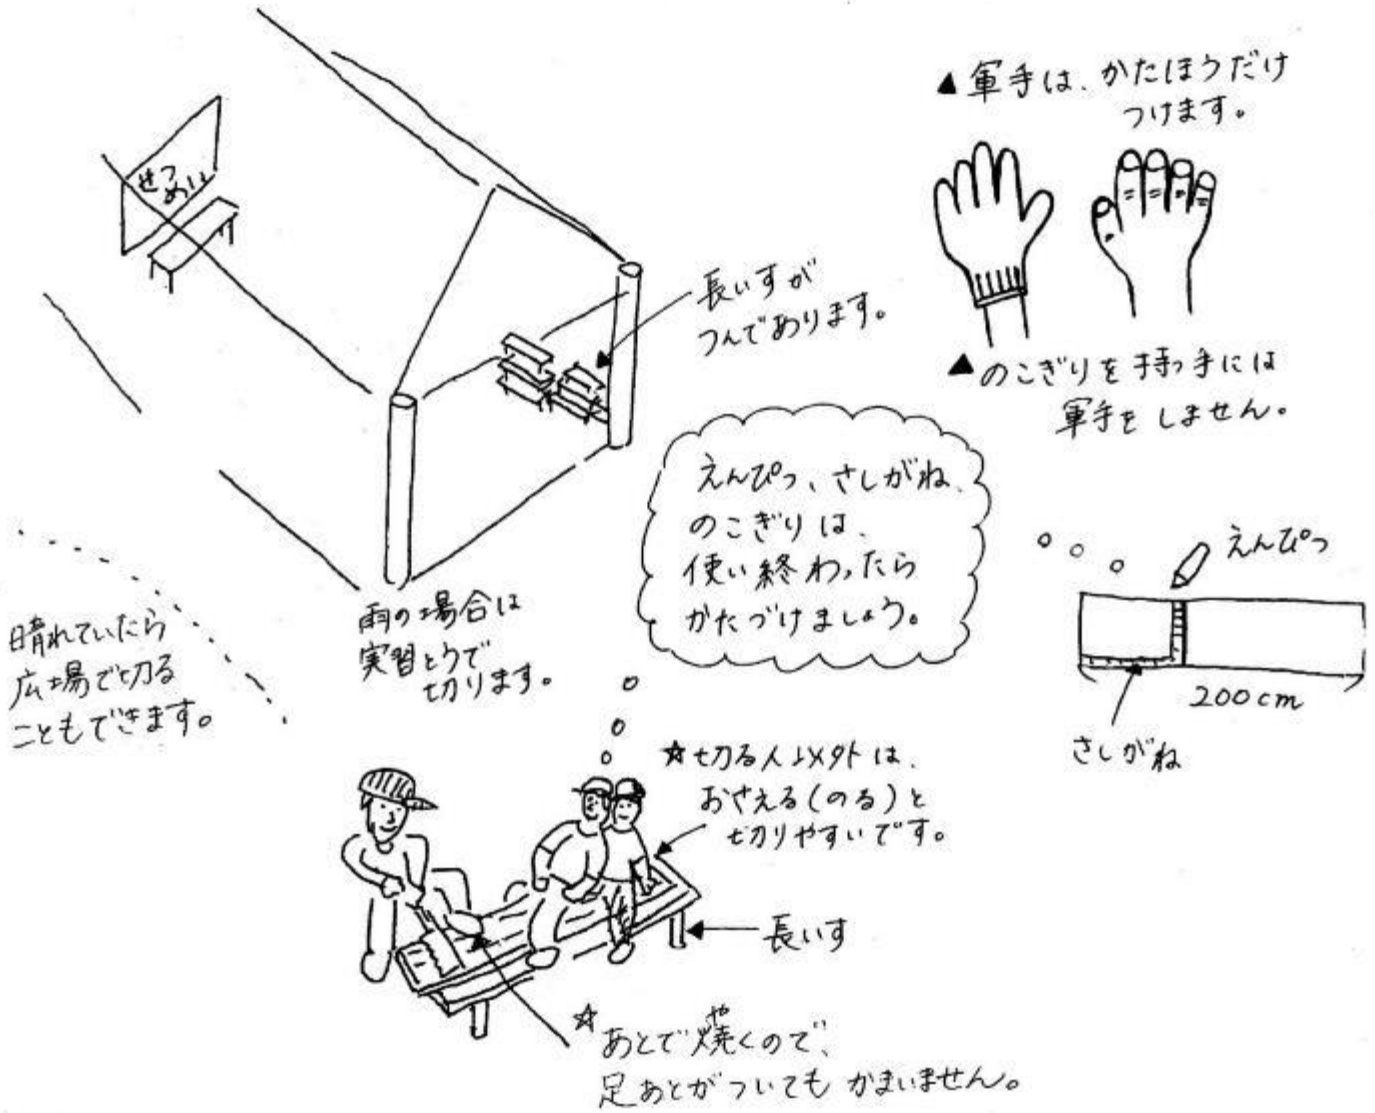 ▲軍手は、かたほうだけ
つけます。
せつ
めい
長いすが
つんであります。
▲のこぎりを持つ手には
軍手をしません。
えんぴつ、さしがね、
のこぎりは、
使い終わったら
かたづけましょう。
えんぴつ
200cm
さしがね
雨の場合は
実習とうで
切ります。
晴れていたら
広場で切る
こともできます。
☆切る人以外は、
おさえる(のる)と
切りやすいです。
長いす
☆
や
あとで焼くので、
足あとがついてもかまいません。